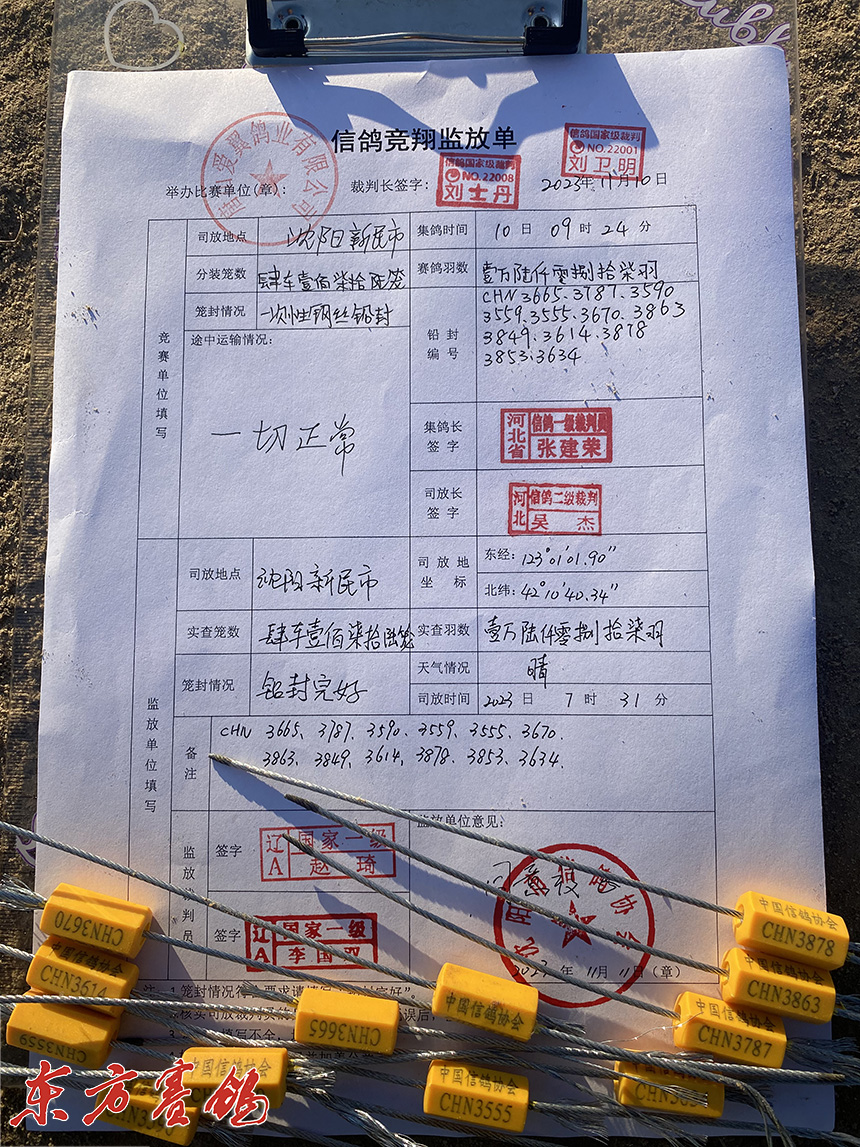 信鸽竞翔监放单
爱翼鸽业有限公司
信鸽国家级裁判
NO.22001
刘卫明
信鸽国家级裁判
NO.22008
刘士丹
举办比赛单位(章)：
裁判长签字：
2023年11月10日
竞赛单位填写
司放地点
沈阳新民市
集鸽时间
10日 09时24分
分装笼数
肆车壹佰柒拾陆笼
赛鸽羽数
壹万陆仟零捌拾柒羽
笼封情况
一次性钢丝铅封
铅封编号
CHN 3665、3787、3590
3559、3555、3670、3863
3849、3614、3878
3853、3634
途中运输情况：
一切正常
集鸽长签字
河北省
信鸽一级裁判员
张建荣
司放长签字
河北
信鸽二级裁判
吴杰
监放单位填写
司放地点
沈阳新民市
司放地坐标
东经：123°01′01.90″
北纬：42°10′40.34″
实查笼数
肆车壹佰柒拾陆笼
实查羽数
壹万陆仟零捌拾柒羽
笼封情况
铅封完好
天气情况
晴
司放时间
2023日 7时31分
备注
CHN 3665、3787、3590、3559、3555、3670、
3863、3849、3614、3878、3853、3634.
签字
辽A
国家一级
赵琦
监放单位意见：
签字
辽A
国家一级
李国双
2023年11月11日(章)
中国信鸽协会
CHN3878
中国信鸽协会
CHN3863
中国信鸽协会
CHN3787
CHN3670
中国信鸽协会
CHN3614
CHN3559
CHN3665
中国信鸽协会
中国信鸽协会
中国信鸽协会
CHN3555
中国信鸽协会
东方赛鸽